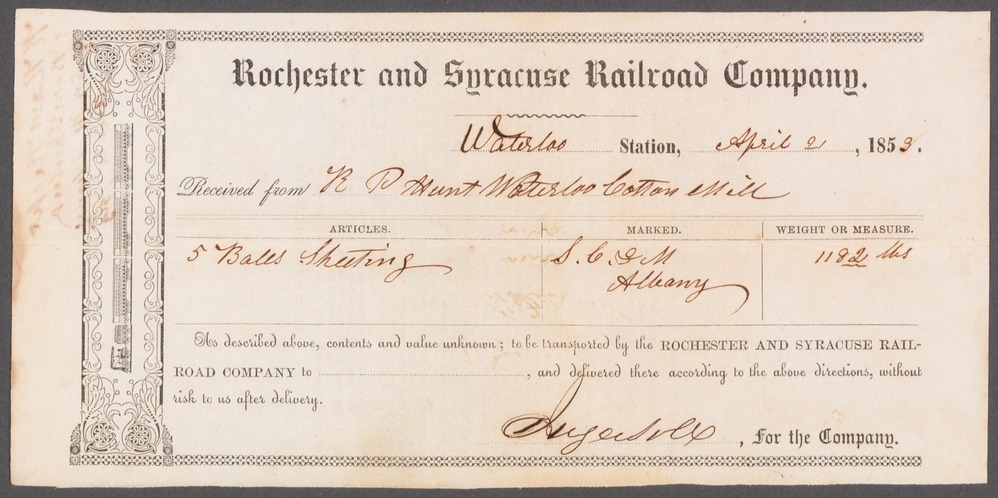 Rochester and Syracuse Railroad Company.
Waterloo Station, April 2, 1853.
Received from R P Hunt Waterloo Cotton Mill
ARTICLES. MARKED. WEIGHT OR MEASURE.
5 Bales Sheeting S. C. & M 1182 lbs
Albany
As described above, contents and value unknown; to be transported by the ROCHESTER AND SYRACUSE RAIL-
ROAD COMPANY to , and delivered there according to the above directions, without
risk to us after delivery.
Ingersoll , For the Company.